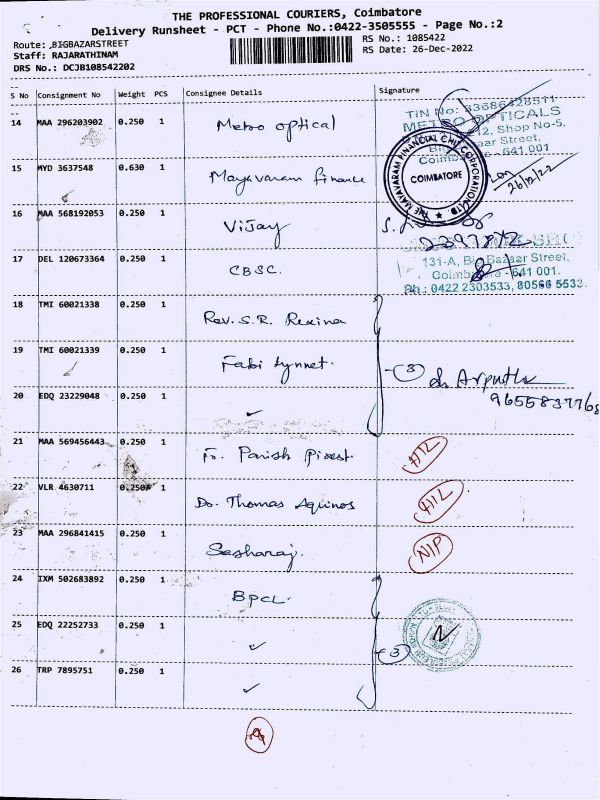 THE PROFESSIONAL COURIERS, Coimbatore
Delivery Runsheet - PCT - Phone No.:0422-3505555 - Page No.:2
Route: ,BIGBAZARSTREET
RS No.: 1085422
Staff: RAJARATHINAM
RS Date: 26-Dec-2022
DRS No.: DCJB108542202
S No Consignment No Weight PCS Consignee Details Signature
14 MAA 296203902 0.250 1 Metro optical
TIN No: 33686428511
METRO OPTICALS
12, Shop No-5,
Bazaar Street,
Coimbatore - 641 001
15 MYD 3637548 0.630 1 Mayavaram finance
THE MAYAVARAM FINANCIAL CHIT CORPORATION LTD.
COIMBATORE
26/12/22
16 MAA 568192053 0.250 1 Vijay
17 DEL 120673364 0.250 1 CBSC.
131-A, Big Bazaar Street,
Coimbatore - 641 001.
Ph.: 0422 2303533, 80566 5533.
18 TMI 60021338 0.250 1 Rev. S.R. Rexina
19 TMI 60021339 0.250 1 Fabi Lynnet.
3
20 EDQ 23229048 0.250 1 ✓
9655837768
21 MAA 569456443 0.250 1 Fr. Parish Priest
22 VLR 4630711 0.250 1 Do. Thomas Aquinos
23 MAA 296841415 0.250 1 Sesharaj.
N/P
24 IXM 502683892 0.250 1 BPCL.
25 EDQ 22252733 0.250 1 ✓
3
26 TRP 7895751 0.250 1 ✓